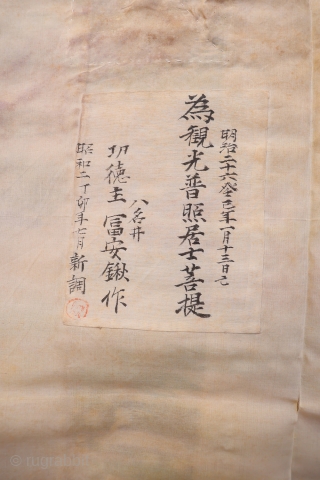 明治二十六癸巳年一月十三日亡
為觀光普照居士菩提
八名井
功徳主 冨安鍬作
昭和二丁卯年七月新調